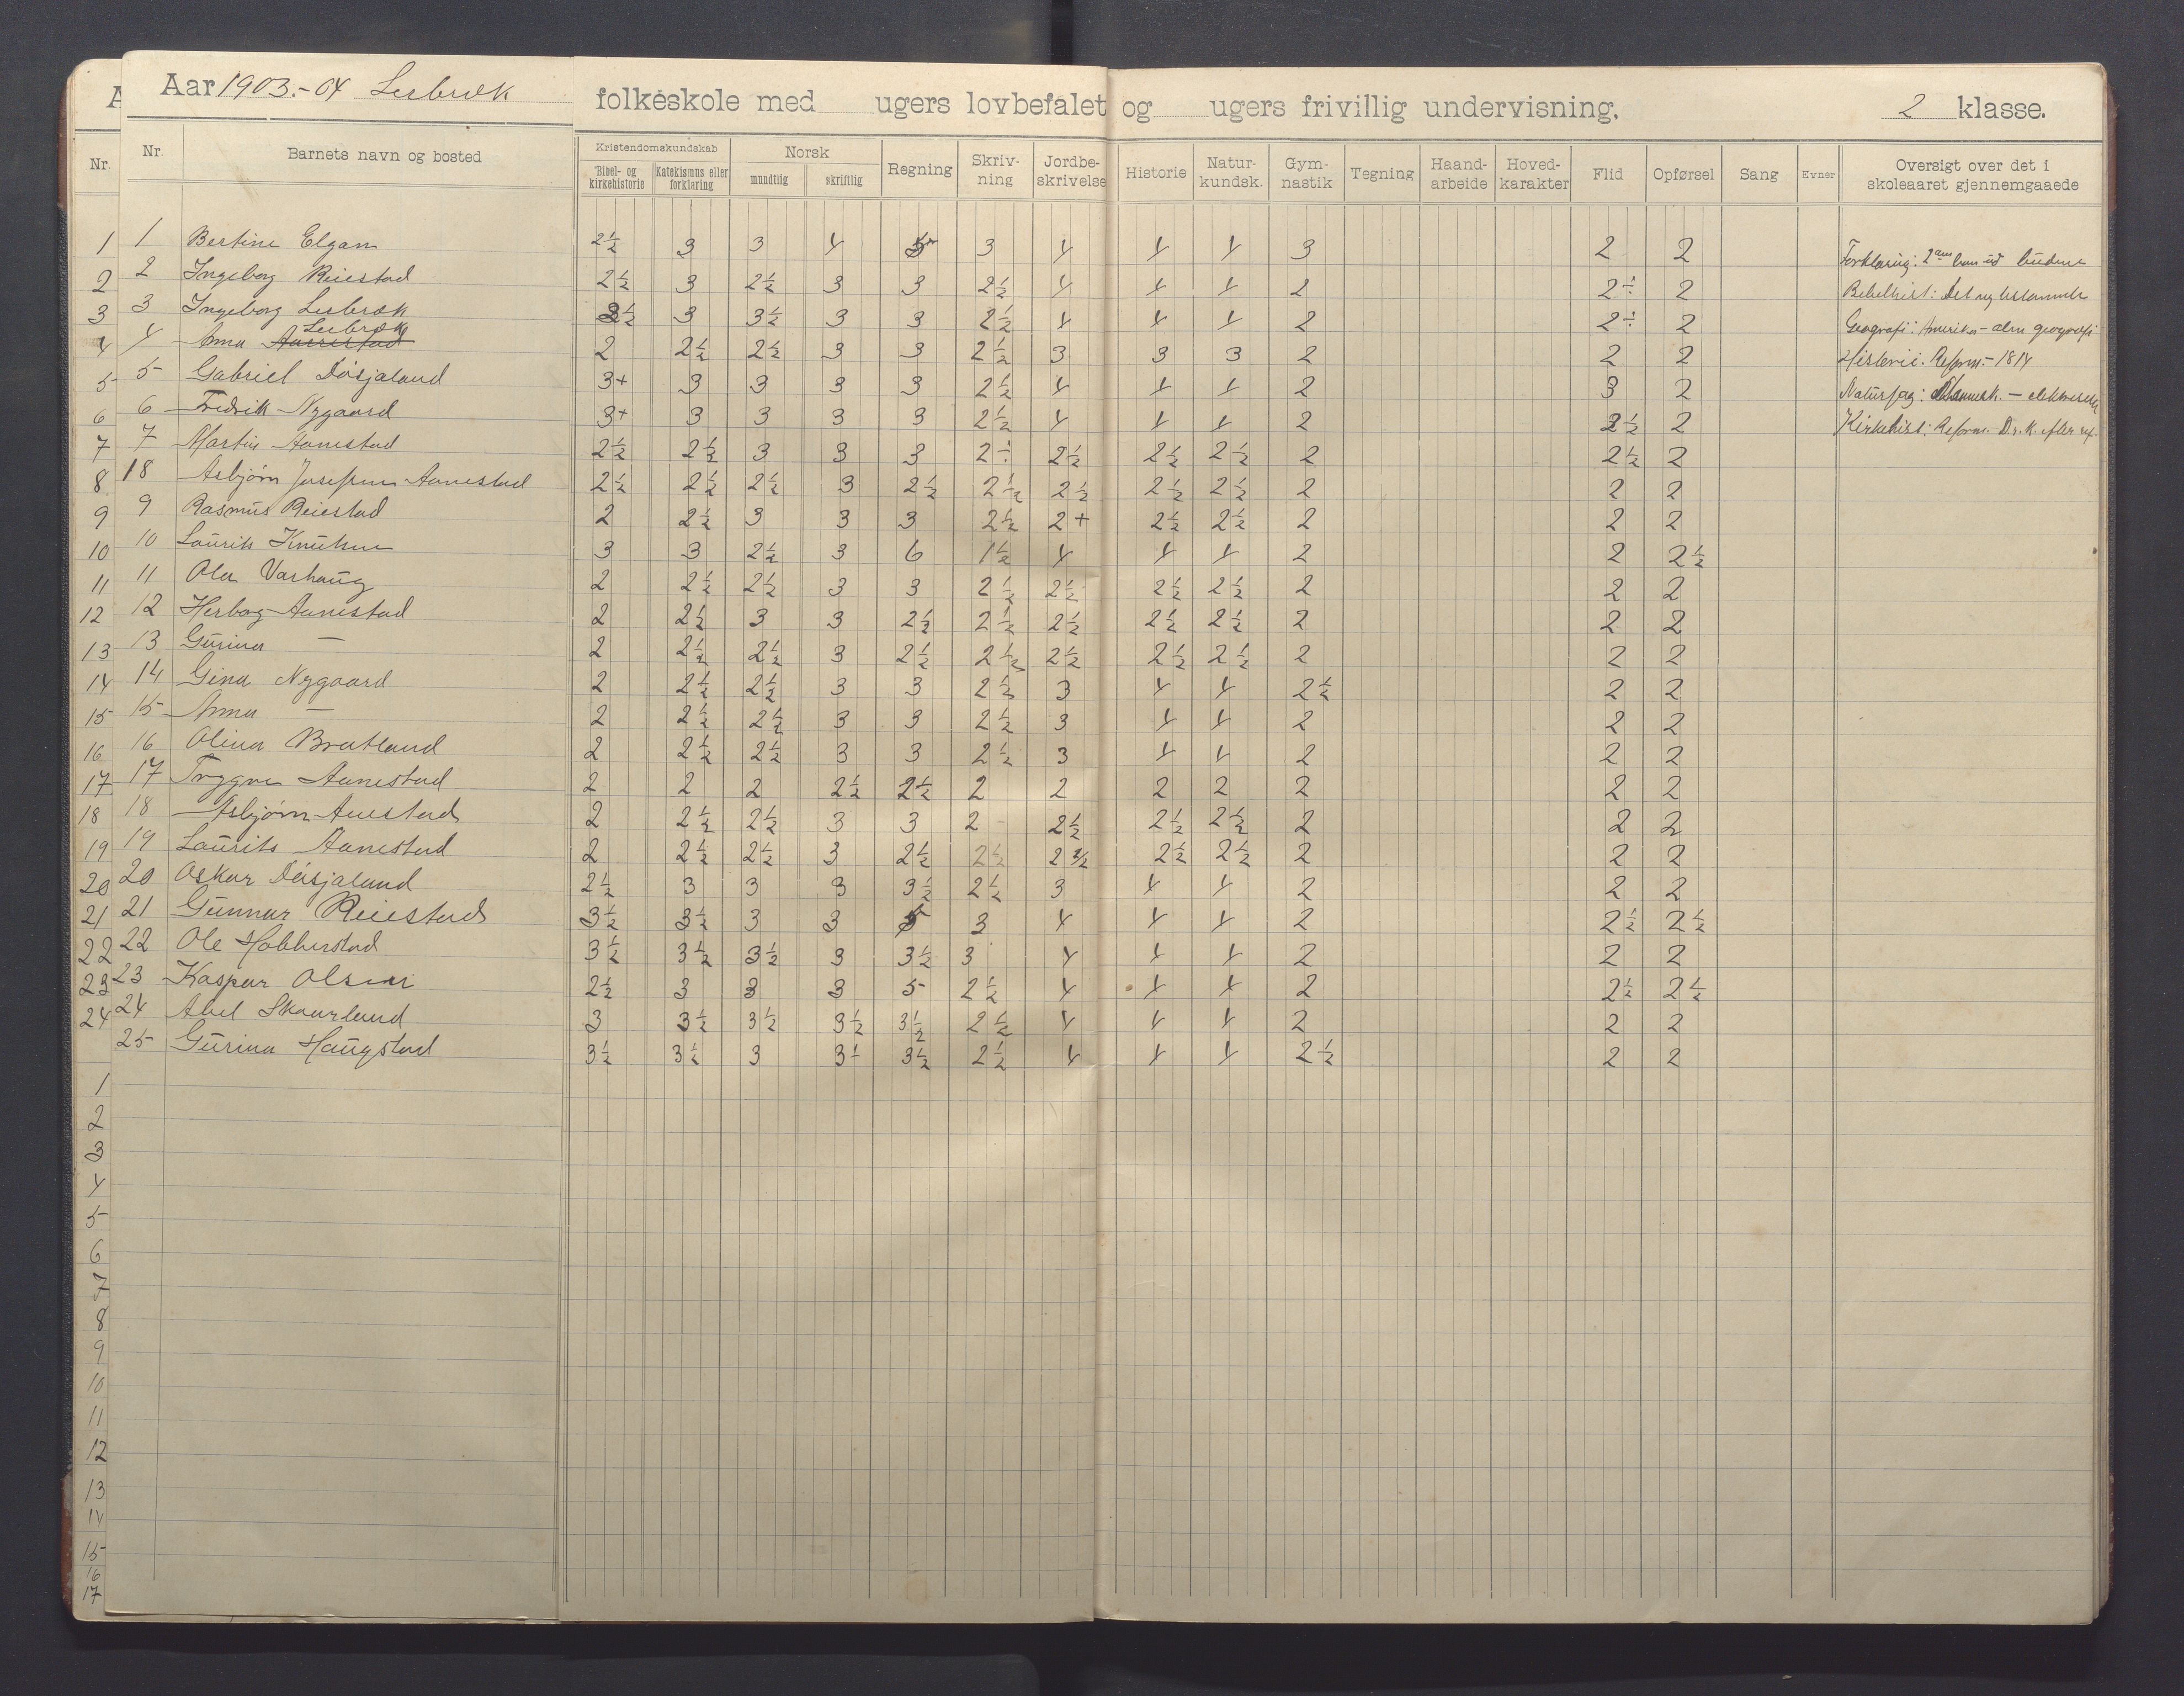 Aar 1903.-04 Lerbræk folkeskole med ugers lovbefalet og ugers frivillig undervisning. 2 klasse.
Nr. Nr. Barnets navn og bosted Kristendomskundskab Bibel- og kirkehistorie Katekismus eller forklaring Norsk mundtlig skriftlig Regning Skriv-ning Jordbe-skrivelse Historie Natur-kundsk. Gym-nastik Tegning Haand-arbeide Hoved-karakter Flid Opførsel Sang Evner Oversigt over det i skoleaaret gjennemgaaede
1 1 Bertine Elgam 2½ 3 3 4 5 3 4 4 4 3 2 2 Forklaring: 2
2 2 Ingeborg Reiestad 2½ 3 2½ 3 3 2½ 4 4 4 2 2÷ 2 Bibelhist: Det ny testamente
3 3 Ingeborg Lerbræk 3½ 3 3½ 3 3 2½ 4 4 4 2 2÷ 2 Geografi: Amerika - alm geografi
4 4 Anna Aanestad Lerbræk 2 2½ 2½ 3 3 2½ 3 3 3 2 2 2 Historie: Reform. - 1814
5 5 Gabriel Døsjaland 3+ 3 3 3 3 2½ 4 4 4 2 3 2 Naturfag:
6 6 Fredrik Nygaard 3+ 3 3 3 3 2½ 4 4 4 2 2½ 2 Kirkehist: Reform. D. n. K. efter ref.
7 7 Martin Aanestad 2½ 2½ 3 3 3 2÷ 2½ 2½ 2½ 2 2½ 2
8 18 Asbjørn Josefsen Aanestad 2½ 2½ 2½ 3 2½ 2½ 2½ 2½ 2½ 2 2 2
9 9 Rasmus Reiestad 2 2½ 3 3 3 2½ 2+ 2½ 2½ 2 2 2
10 10 Laurits Knutsen 3 3 2½ 3 6 1½ 4 4 4 2 2 2½
11 11 Ola Varhaug 2 2½ 2½ 3 3 2½ 2½ 2½ 2½ 2 2 2
12 12 Herborg Aanestad 2 2½ 3 3 2½ 2½ 2½ 2½ 2½ 2 2 2
13 13 Gurina — 2 2½ 2½ 3 2½ 2½ 2½ 2½ 2½ 2 2 2
14 14 Gina Nygaard 2 2½ 2½ 3 3 2½ 3 4 4 2½ 2 2
15 15 Anna — 2 2½ 2½ 3 3 2½ 3 4 4 2 2 2
16 16 Olina Bratland 2 2½ 2½ 3 3 2½ 3 4 4 2 2 2
17 17 Trygve Aanestad 2 2 2 2½ 2½ 2 2 2 2 2 2 2
18 18 Asbjørn Aanestad 2 2½ 2½ 3 3 2 2½ 2½ 2½ 2 2 2
19 19 Laurits Aanestad 2 2½ 2½ 3 2½ 2½ 2½ 2½ 2½ 2 2 2
20 20 Oskar Døsjaland 2½ 3 3 3 3½ 2½ 3 4 4 2 2 2
21 21 Gunnar Reiestad 3½ 3½ 3 3 5 3 4 4 4 2 2½ 2½
22 22 Ole Hobberstad 3½ 3½ 3½ 3 3½ 3 4 4 4 2 2 2
23 23 Kaspar Olsen 2½ 3 3 3 5 2½ 4 4 4 2 2½ 2½
24 24 Abel Skaarland 3 3½ 3½ 3½ 3½ 2½ 4 4 4 2 2 2
25 Gurina Haugstad 3½ 3½ 3 3½ 3½ 2½ 4 4 4 2½ 2 2
1
2
3
4
5
6
7
8
9
10
11
12
13
14
15
16
17